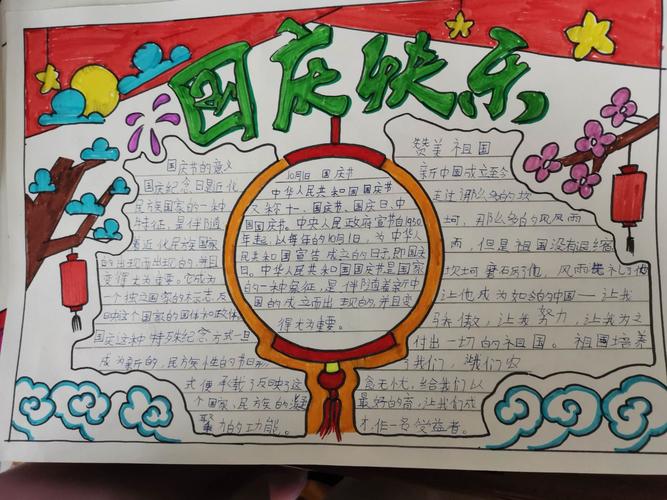 国庆快乐
国庆节的意义
国庆纪念日是近代
民族国家的一种
特征，是伴随
着近代民族国家
的出现而出现的，并且
变得尤为重要。它成为
一个独立国家的标志，反
映这个国家的国体和政体
国庆这种特殊纪念方式一旦
成为新的，民族性的节日形
式便承载了反映这
个国家、民族的凝
聚力的功能。
10月1日 国庆节
中华人民共和国国庆节
又称十一、国庆节、国庆日、中
国国庆节。中央人民政府宣布自1950
年起，以每年的10月1日，为中华人
民共和国宣告成立的日子，即国庆
日。中华人民共和国国庆节是国家
的一种象征，是伴随着新中
国的成立而出现的，并且变
得尤为重要。
赞美祖国
新中国成立至今
走过那么多的坎
坷，那么多的风风雨
雨，但是祖国没有退缩
坎坷磨石历了他，风雨
让他成为如今的中国——让我
骄傲，让我努力，让我为之
付出一切的祖国。祖国培养
了我们，
无小尤，给我们以
最好的 让我们成
才作一名受益者。